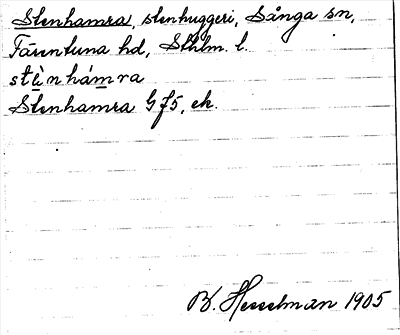 Stenhamra, stenhuggeri, Sånga sn,
Färentuna hd, Sthlm. l.
stènhámra
Stenhamra GJ5, ek.
B. Hesselman 1905